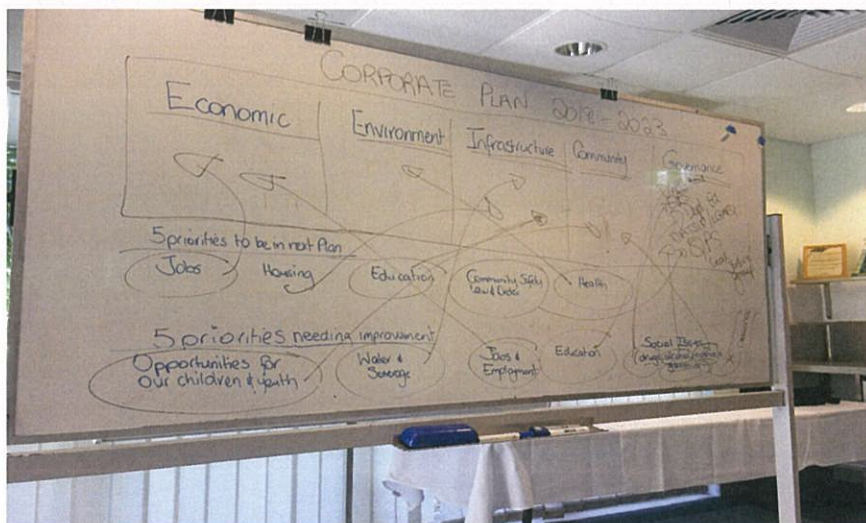 CORPORATE PLAN 2018-2023
Economic
Environment
Infrastructure
Community
Governance
5 priorities to be in next Plan
Jobs
Housing
Education
Community Safety
Law & Order
Health
5 priorities needing improvement
Opportunities for
our children & youth
Water &
Sewerage
Jobs &
Employment
Education
Social Issues
drugs, alcohol